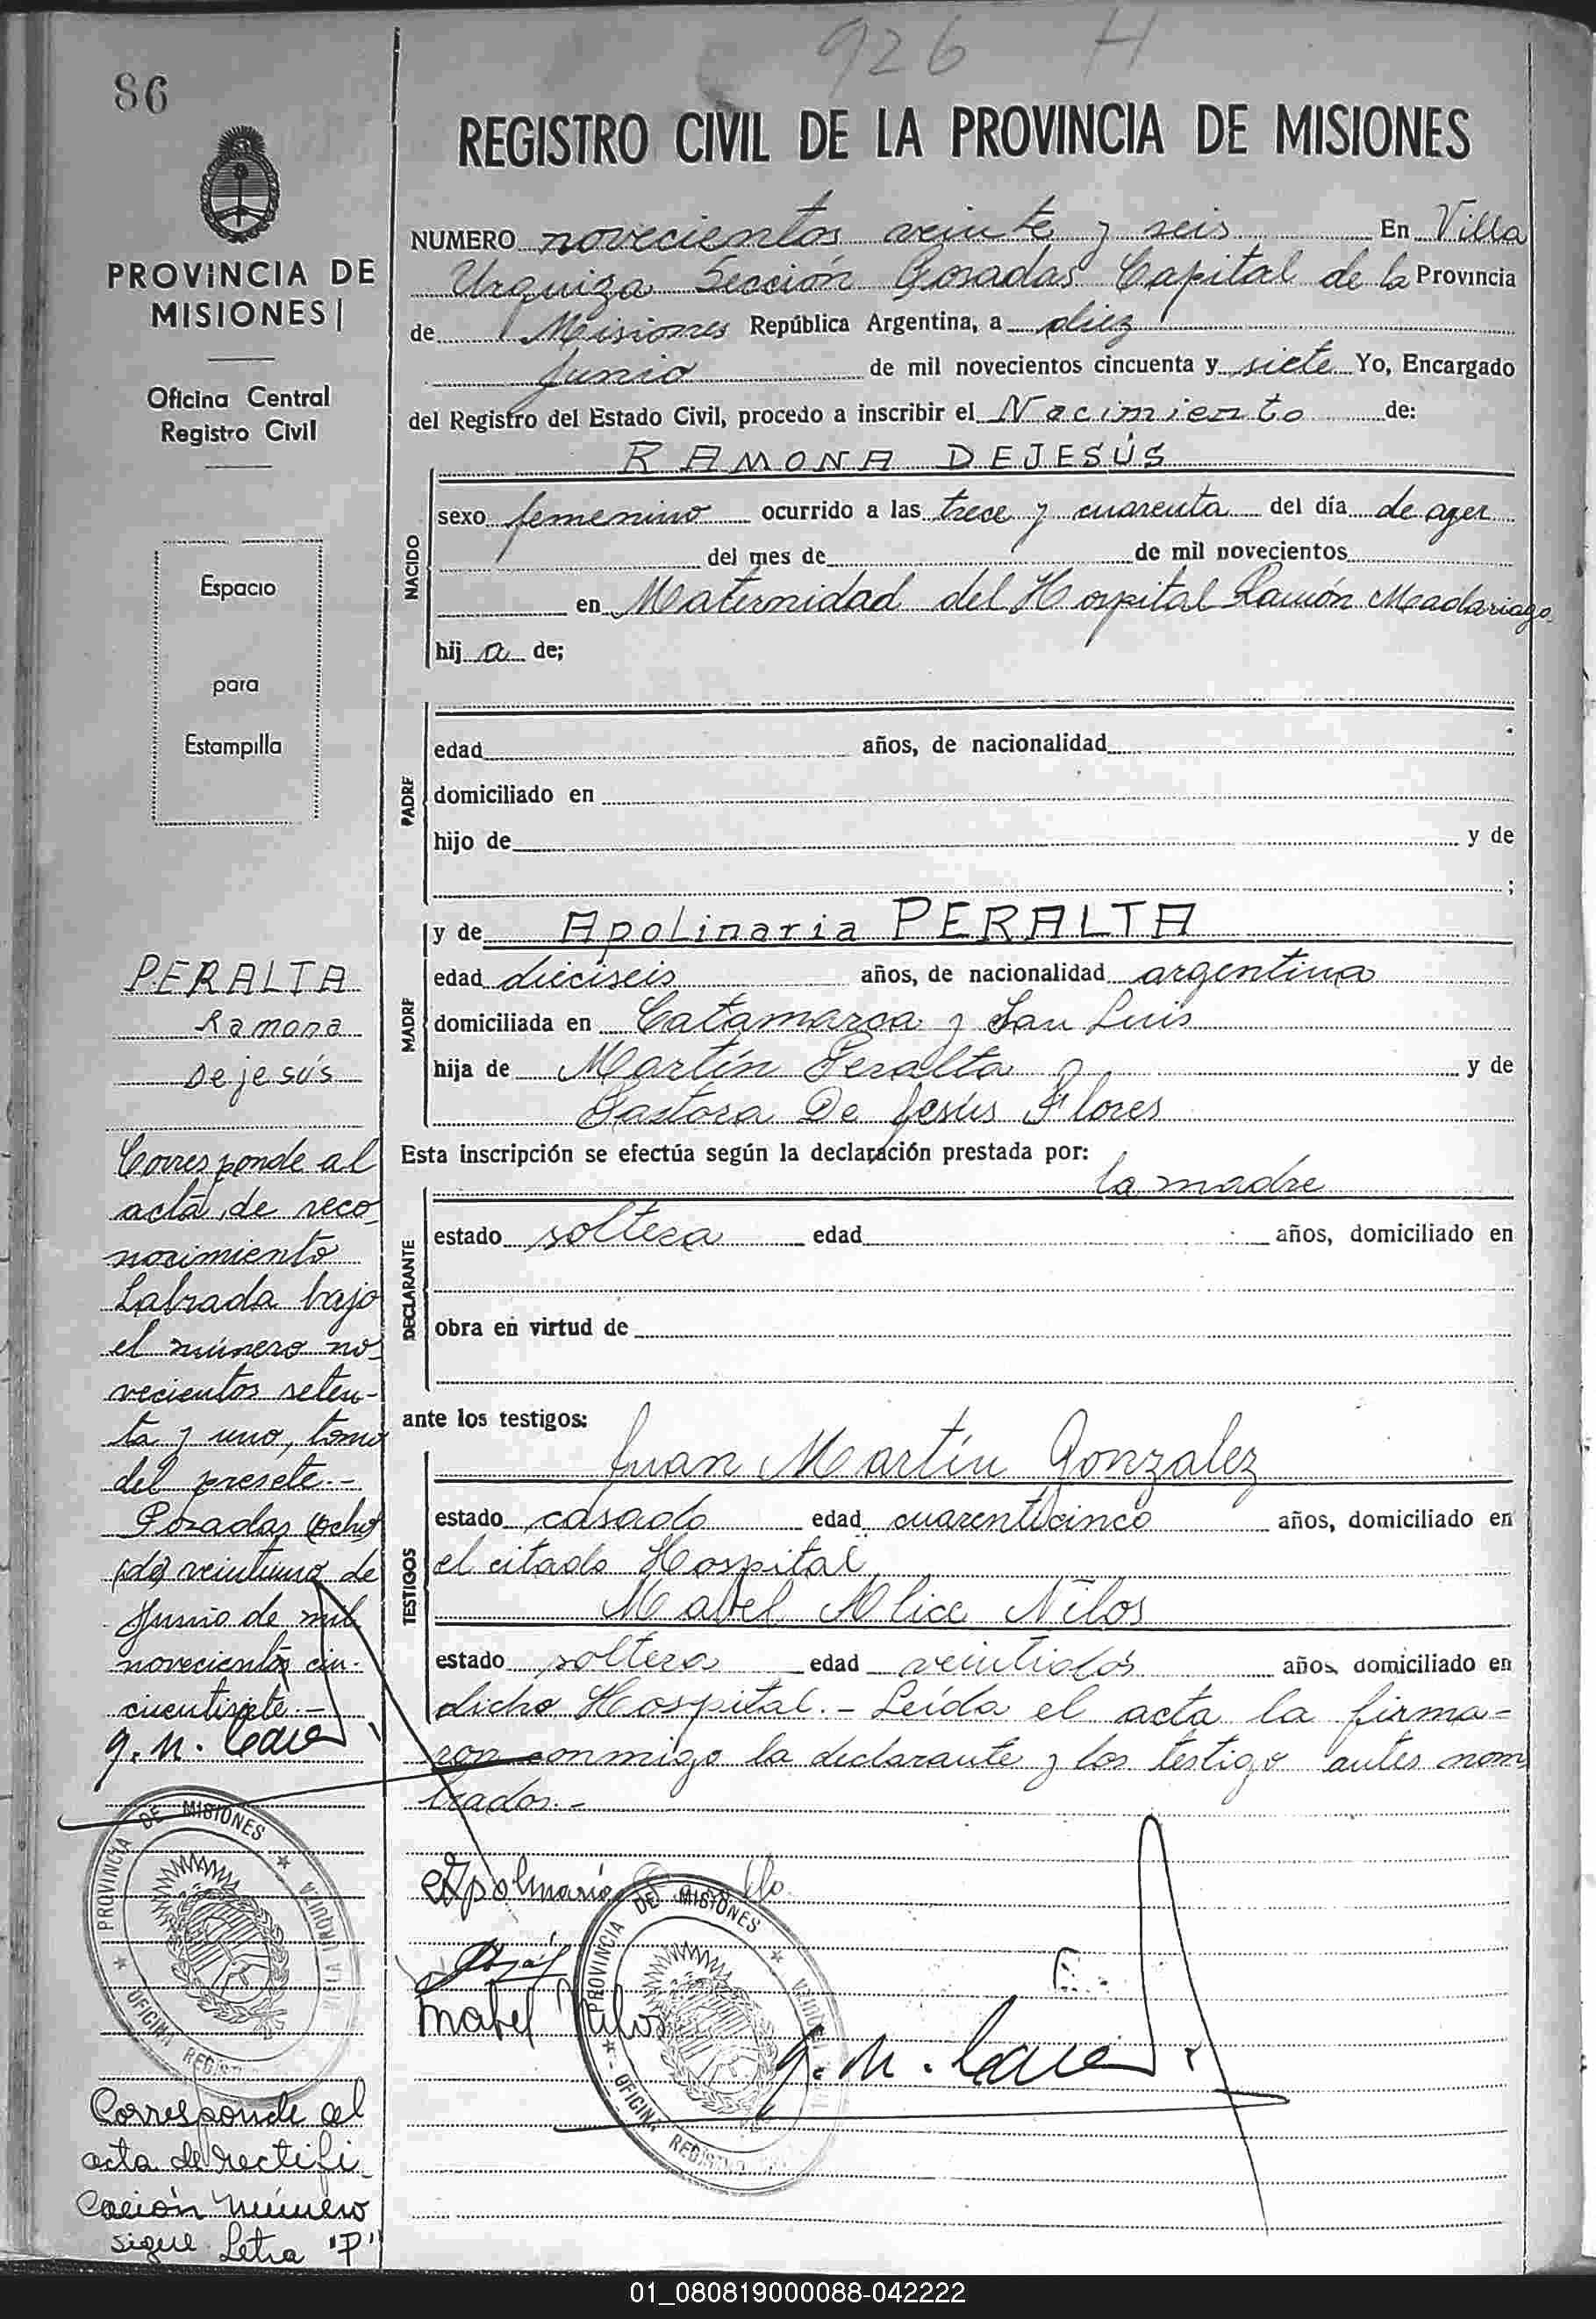 926 H
86
REGISTRO CIVIL DE LA PROVINCIA DE MISIONES
PROVINCIA DE
MISIONES
Oficina Central
Registro Civil
Espacio
para
Estampilla
PERALTA
Ramona
Dejesús
Corresponde al
acta de reco
nocimiento
Labrada bajo
el número no
vecientos seten-
ta y uno, tomo
del presete.-
Posadas (ocho
(de) veintiuno de
Junio de mil
novecientos cin-
cuentisiete.-
PROVINCIA DE MISIONES
VILLA URQUIZA
OFICINA REGISTRO
Corresponde al
acta de rectifi
cación número
sigue Letra "P"
NUMERO novecientos veinte y seis En Villa
Urquiza Sección Posadas Capital de la Provincia
de Misiones República Argentina, a diez
Junio de mil novecientos cincuenta y siete Yo, Encargado
del Registro del Estado Civil, procedo a inscribir el Nacimiento de:
RAMONA DEJESÚS
NACIDO
sexo femenino ocurrido a las trece y cuarenta del día de ayer
del mes de de mil novecientos
en Maternidad del Hospital Ramón Madariaga
hij a de;
PADRE
edad años, de nacionalidad
domiciliado en
hijo de y de
;
MADRE
y de Apolinaria PERALTA
edad dieciseis años, de nacionalidad argentina
domiciliada en Catamarca y San Luis
hija de Martín Peralta y de
Pastora De Jesús Flores
Esta inscripción se efectúa según la declaración prestada por:
la madre
DECLARANTE
estado soltera edad años, domiciliado en
obra en virtud de
ante los testigos:
Juan Martín Gonzalez
TESTIGOS
estado casado edad cuarenticinco años, domiciliado en
el citado Hospital
Mabel Alice Nilos
estado soltera edad veintidos años domiciliado en
dicho Hospital.- Leída el acta la firma-
ron conmigo la declarante y los testigo antes nom
brados.-
Apolinaria
Mabel Nilos
PROVINCIA DE MISIONES
VILLA URQUIZA
OFICINA REGISTRO
01_080819000088-042222